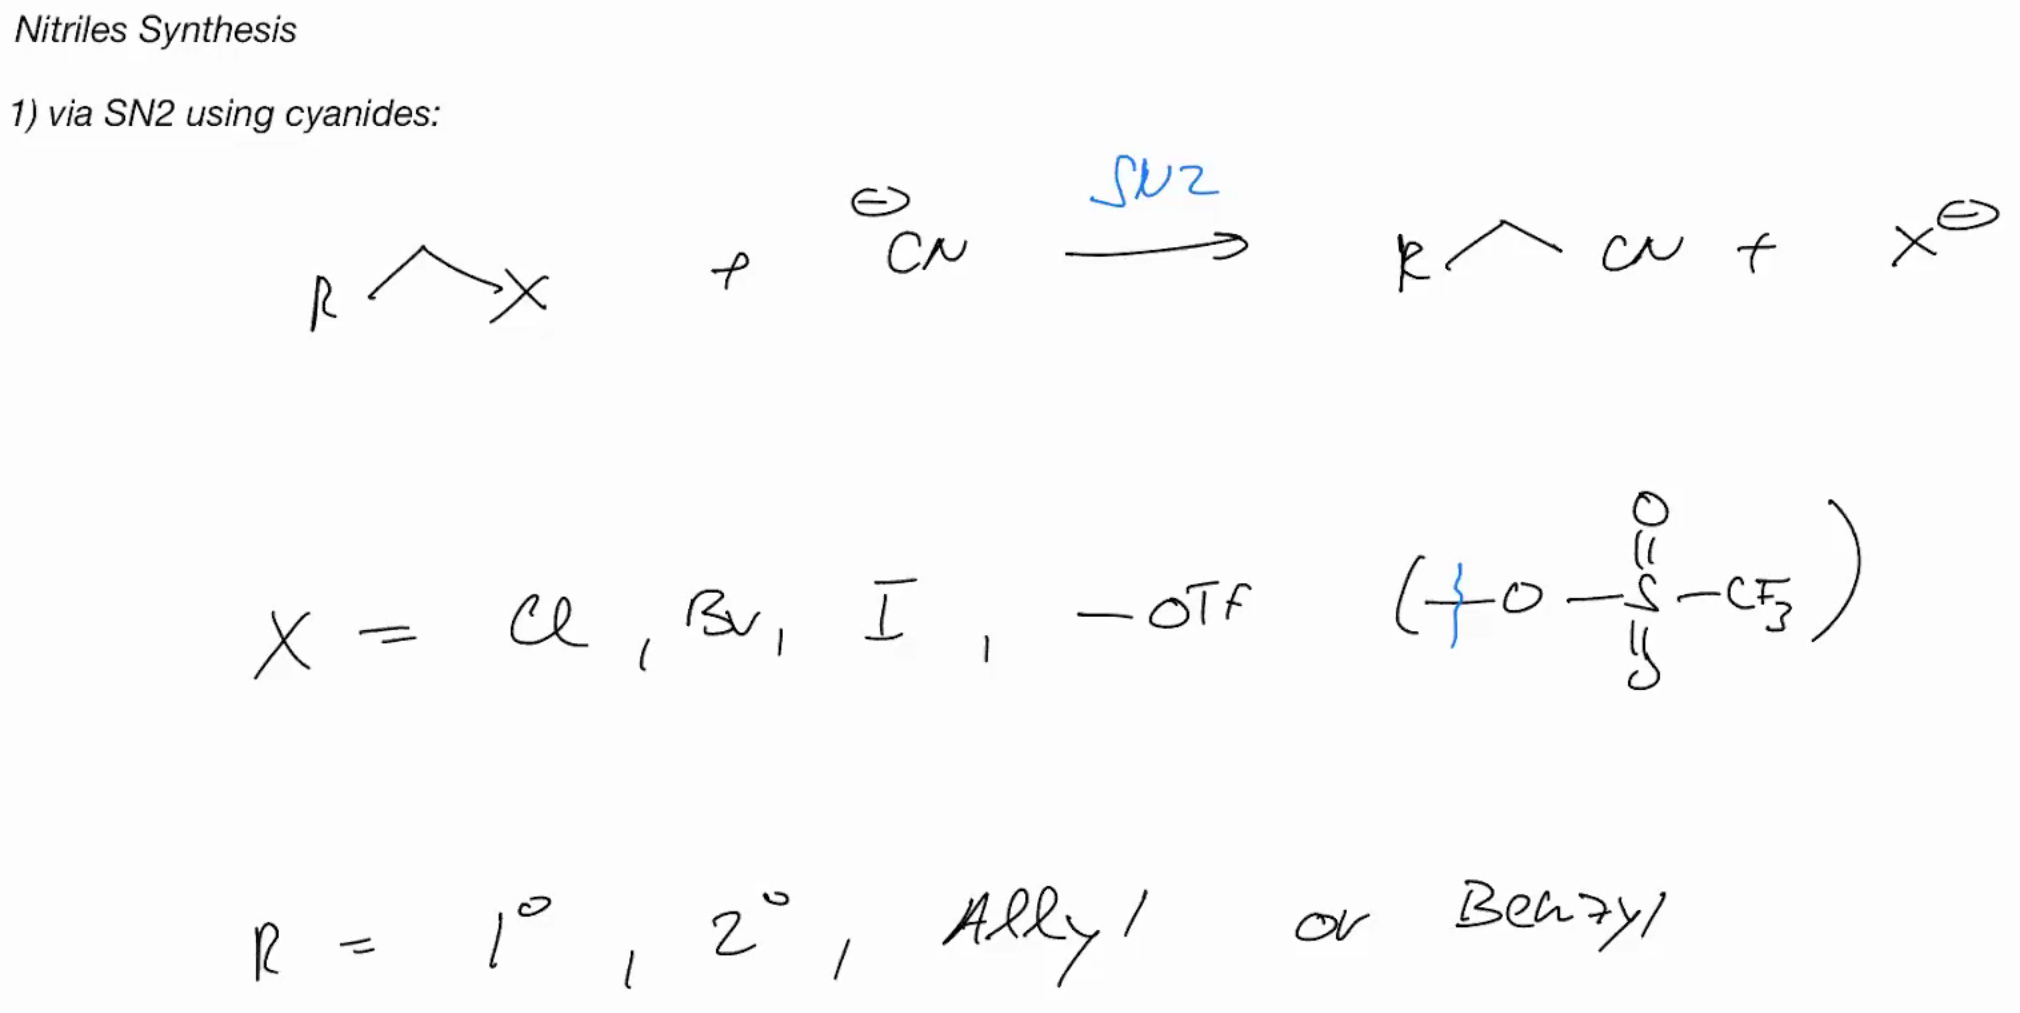 Nitriles Synthesis
1) via SN2 using cyanides:
SN2
R X + ⊖CN → R CN + X⊖
X = Cl, Br, I, -OTf (-O-S-CF3)
O
O
R = 1°, 2°, Allyl or Benzyl